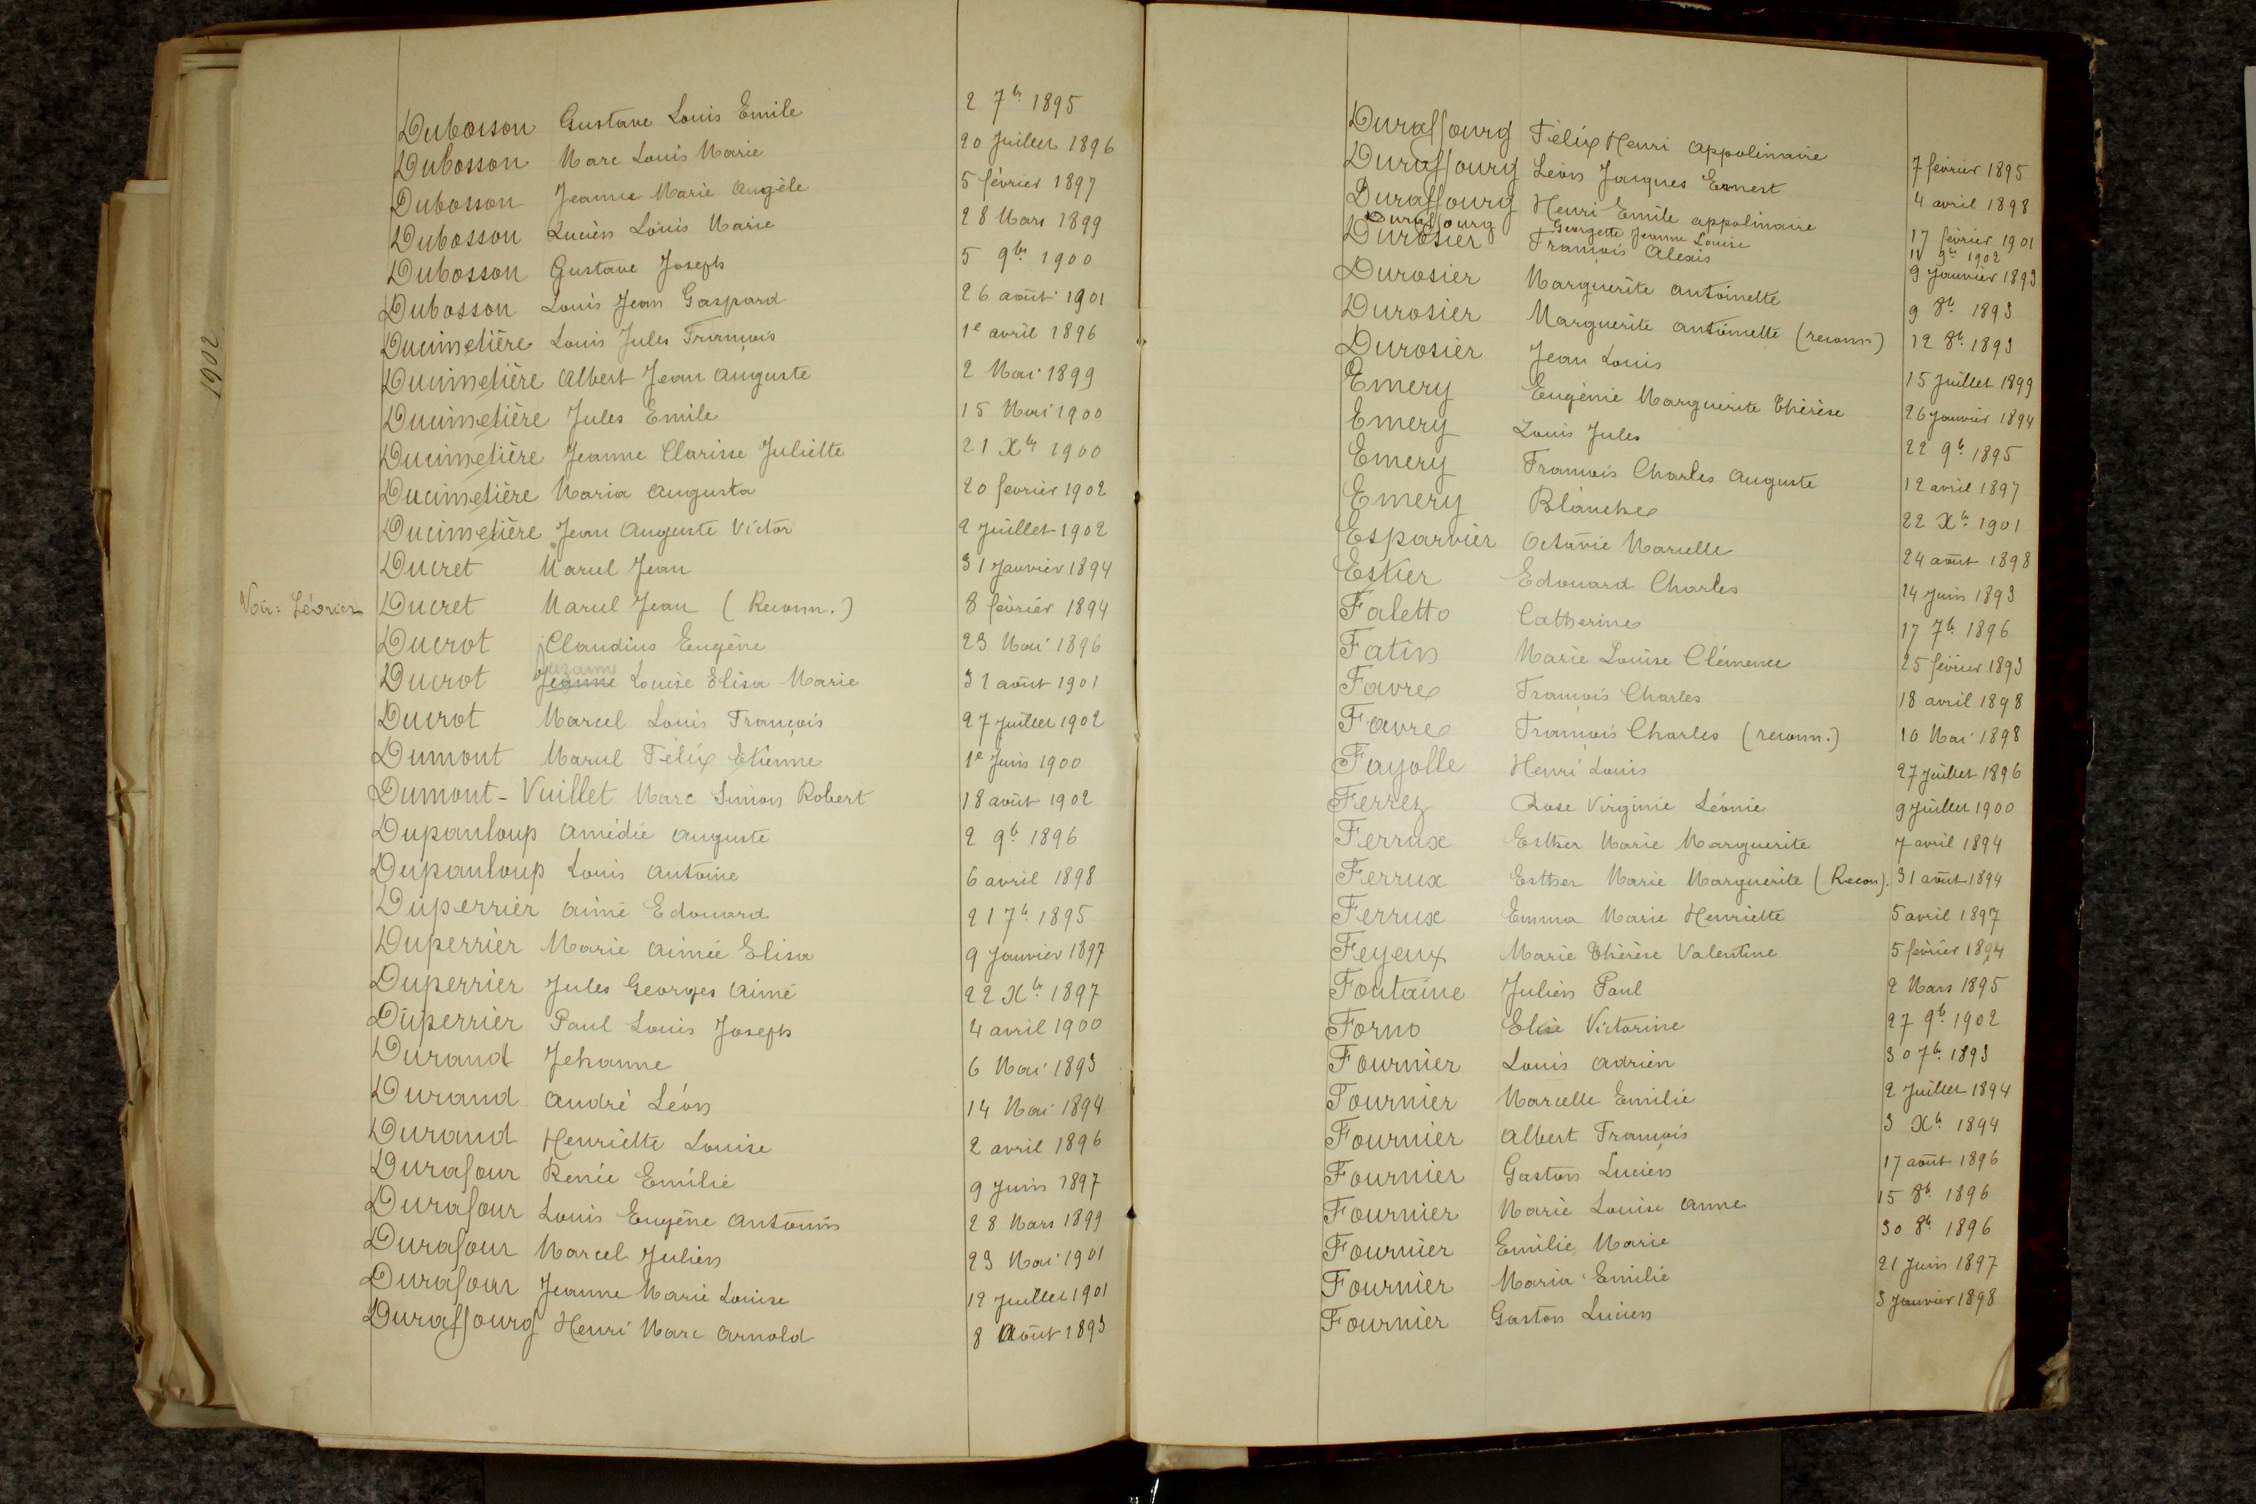 1902
Dubosson Gustave Louis Emile 2 7bre 1895
Dubosson Marc Louis Marie 20 Juillet 1896
Dubosson Jeanne Marie Angèle 5 février 1897
Dubosson Lucien Louis Marie 28 Mars 1899
Dubosson Gustave Joseph 5 9bre 1900
Dubosson Louis Jean Gaspard 26 août 1901
Ducimetière Louis Jules François 1e avril 1896
Ducimetière Albert Jean Auguste 2 Mai 1899
Ducimetière Jules Emile 15 Mai 1900
Ducimetière Jeanne Clarisse Juliette 21 Xbre 1900
Ducimetière Maria Augusta 20 février 1902
Ducimetière Jean Auguste Victor 2 Juillet 1902
Ducret Marcel Jean 31 Janvier 1894
Voir: Lévrier Ducret Marcel Jean (Reconn.) 8 février 1894
Ducrot Claudius Eugène 23 Mai 1896
Ducrot Jeanne Suzanne Louise Elisa Marie 31 août 1901
Ducrot Marcel Louis François 27 Juillet 1902
Dumont Marcel Félix Etienne 1e Juin 1900
Dumont-Vuillet Marc Simon Robert 18 août 1902
Dupanloup Amédée Auguste 2 9b 1896
Dupanloup Louis Antoine 6 avril 1898
Duperrier Aimé Edouard 21 7b 1895
Duperrier Marie Aimée Elisa 9 Janvier 1897
Duperrier Jules Georges Aimé 22 Xbre 1897
Duperrier Paul Louis Joseph 4 avril 1900
Durand Jehanne 6 Mai 1893
Durand André Léon 14 Mai 1894
Durand Henriette Louise 2 avril 1896
Durafour Renée Emélie 9 Juin 1897
Durafour Louis Eugène Antonin 28 Mars 1899
Durafour Marcel Julien 23 Mai 1901
Durafour Jeanne Marie Louise 12 Juillet 1901
Duraffourg Henri Marc Arnold 8 Août 1893
Duraffourg Félix Henri Appolinaire 7 février 1895
Duraffourg Léon Jacques Ernest 4 avril 1898
Duraffourg Henri Emile appolinaire 17 février 1901
Duraffourg Georgette Jeanne Louise 11 9b 1902
Durosier François Alexis 9 Janvier 1893
Durosier Marguerite Antoinette 9 8b 1893
Durosier Marguerite Antoinette (reconn.) 12 8b 1893
Durosier Jean Louis 15 Juillet 1899
Emery Eugénie Marguerite Thérèse 26 Janvier 1894
Emery Louis Jules 22 9b 1895
Emery François Charles Auguste 12 avril 1897
Emery Blanche 22 Xb 1901
Esparvier Octavie Marcelle 24 août 1898
Eskier Edouard Charles 14 Juin 1893
Faletto Catherine 17 7b 1896
Fatin Marie Louise Clémence 25 février 1893
Favre François Charles 18 avril 1898
Favre François Charles (reconn.) 10 Mai 1898
Fayolle Henri Louis 27 Juillet 1896
Ferrez Rose Virginie Léonie 9 Juillet 1900
Ferrux Esther Marie Marguerite 7 avril 1894
Ferrux Esther Marie Marguerite (Recon). 31 août 1894
Ferrux Emma Marie Henriette 5 avril 1897
Feyeux Marie Thérèse Valentine 5 février 1894
Fontaine Julien Paul 2 Mars 1895
Forno Elise Victorine 27 9b 1902
Fournier Louis Adrien 30 7b 1893
Fournier Marcelle Emilie 2 Juillet 1894
Fournier Albert François 3 Xb 1894
Fournier Gaston Lucien 17 août 1896
Fournier Marie Louise Anne 15 8b 1896
Fournier Emilie Marie 30 8b 1896
Fournier Maria Emilie 21 Juin 1897
Fournier Gaston Lucien 3 Janvier 1898